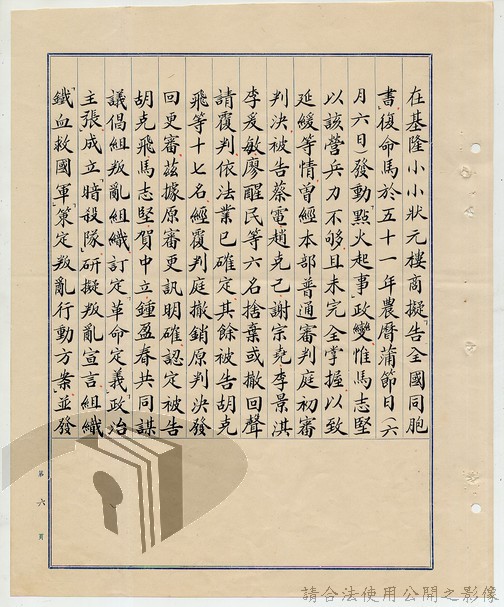 在基隆小小狀元樓商擬「告全國同胞
書」復命馬於五十一年農曆蒲節日(六
月六日)發動點火起事「政變」惟馬志堅
以該營兵力不够且未完全掌握以致
延緩等情曾經本部普通審判庭初審
判決被告蔡電趙克己謝宗堯李景淇
李爰敏廖醒民等六名捨棄或撤回聲
請覆判依法業已確定其餘被告胡克
飛等十七名經覆判庭撤銷原判決發
回更審茲據原審更訊明確認定被告
胡克飛馬志堅賀中立鍾盈春共同謀
議倡組叛亂組織訂定「革命定義」「政治
主張」成立暗殺隊」研擬叛亂宣言組織
「鐵血救國軍」「策定叛亂行動方案」並發
第六頁
請合法使用公開之影像